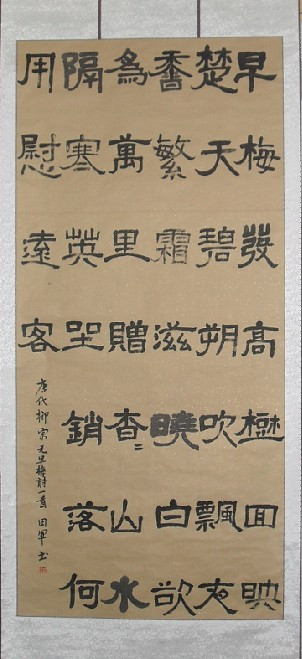 早梅發高樹回映
楚天碧朔吹飄夜
香繁霜滋曉白欲
為萬里贈杳〻山水
隔寒英坐銷落何
用慰遠客
唐代柳宗元早梅詩一首 田軍書